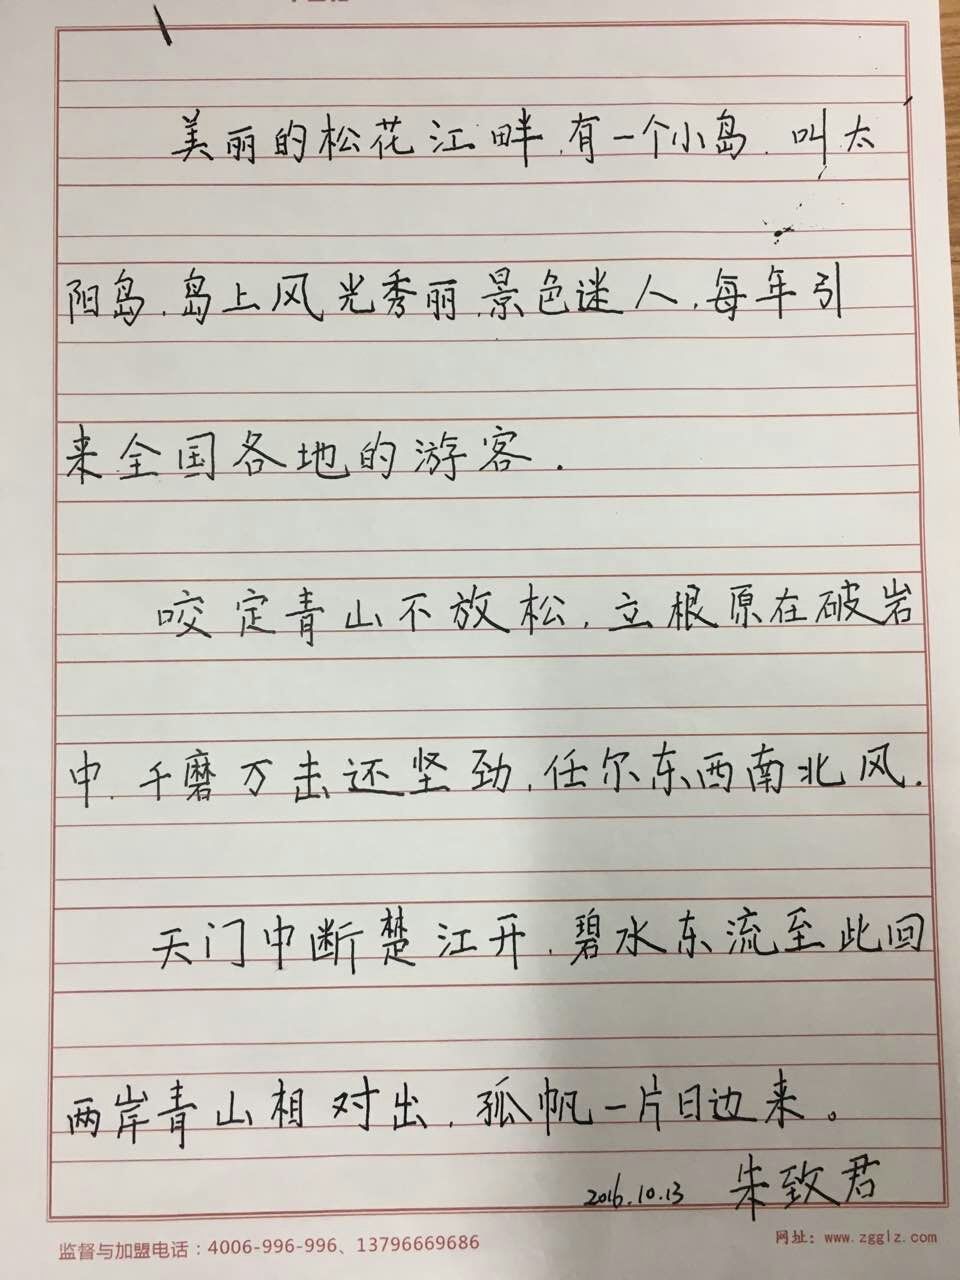 美丽的松花江畔,有一个小岛,叫太
阳岛,岛上风光秀丽,景色迷人,每年引
来全国各地的游客.
咬定青山不放松,立根原在破岩
中,千磨万击还坚劲,任尔东西南北风.
天门中断楚江开,碧水东流至此回
两岸青山相对出,孤帆一片日边来。
2016.10.13 朱致君
监督与加盟电话：4006-996-996、13796669686
网址：www.zgglz.com